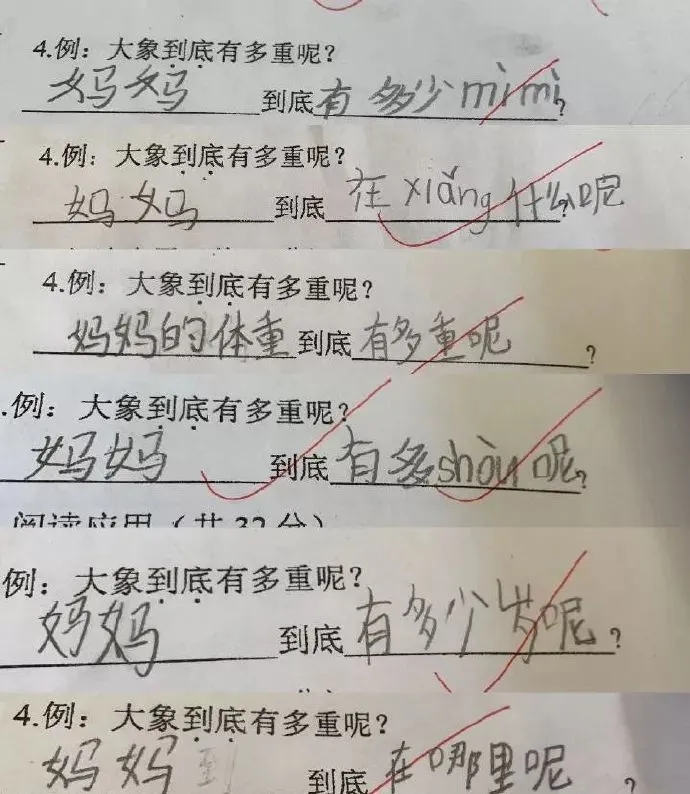 4.例：大象到底有多重呢？
妈妈到底有多少mìmì？
4.例：大象到底有多重呢？
妈妈到底在xiǎng什么呢？
4.例：大象到底有多重呢？
妈妈的体重到底有多重呢？
.例：大象到底有多重呢？
妈妈到底有多shòu呢？
阅读应用（共32分）
例：大象到底有多重呢？
妈妈到底有多少岁呢？
4.例：大象到底有多重呢？
妈妈到底在哪里呢？